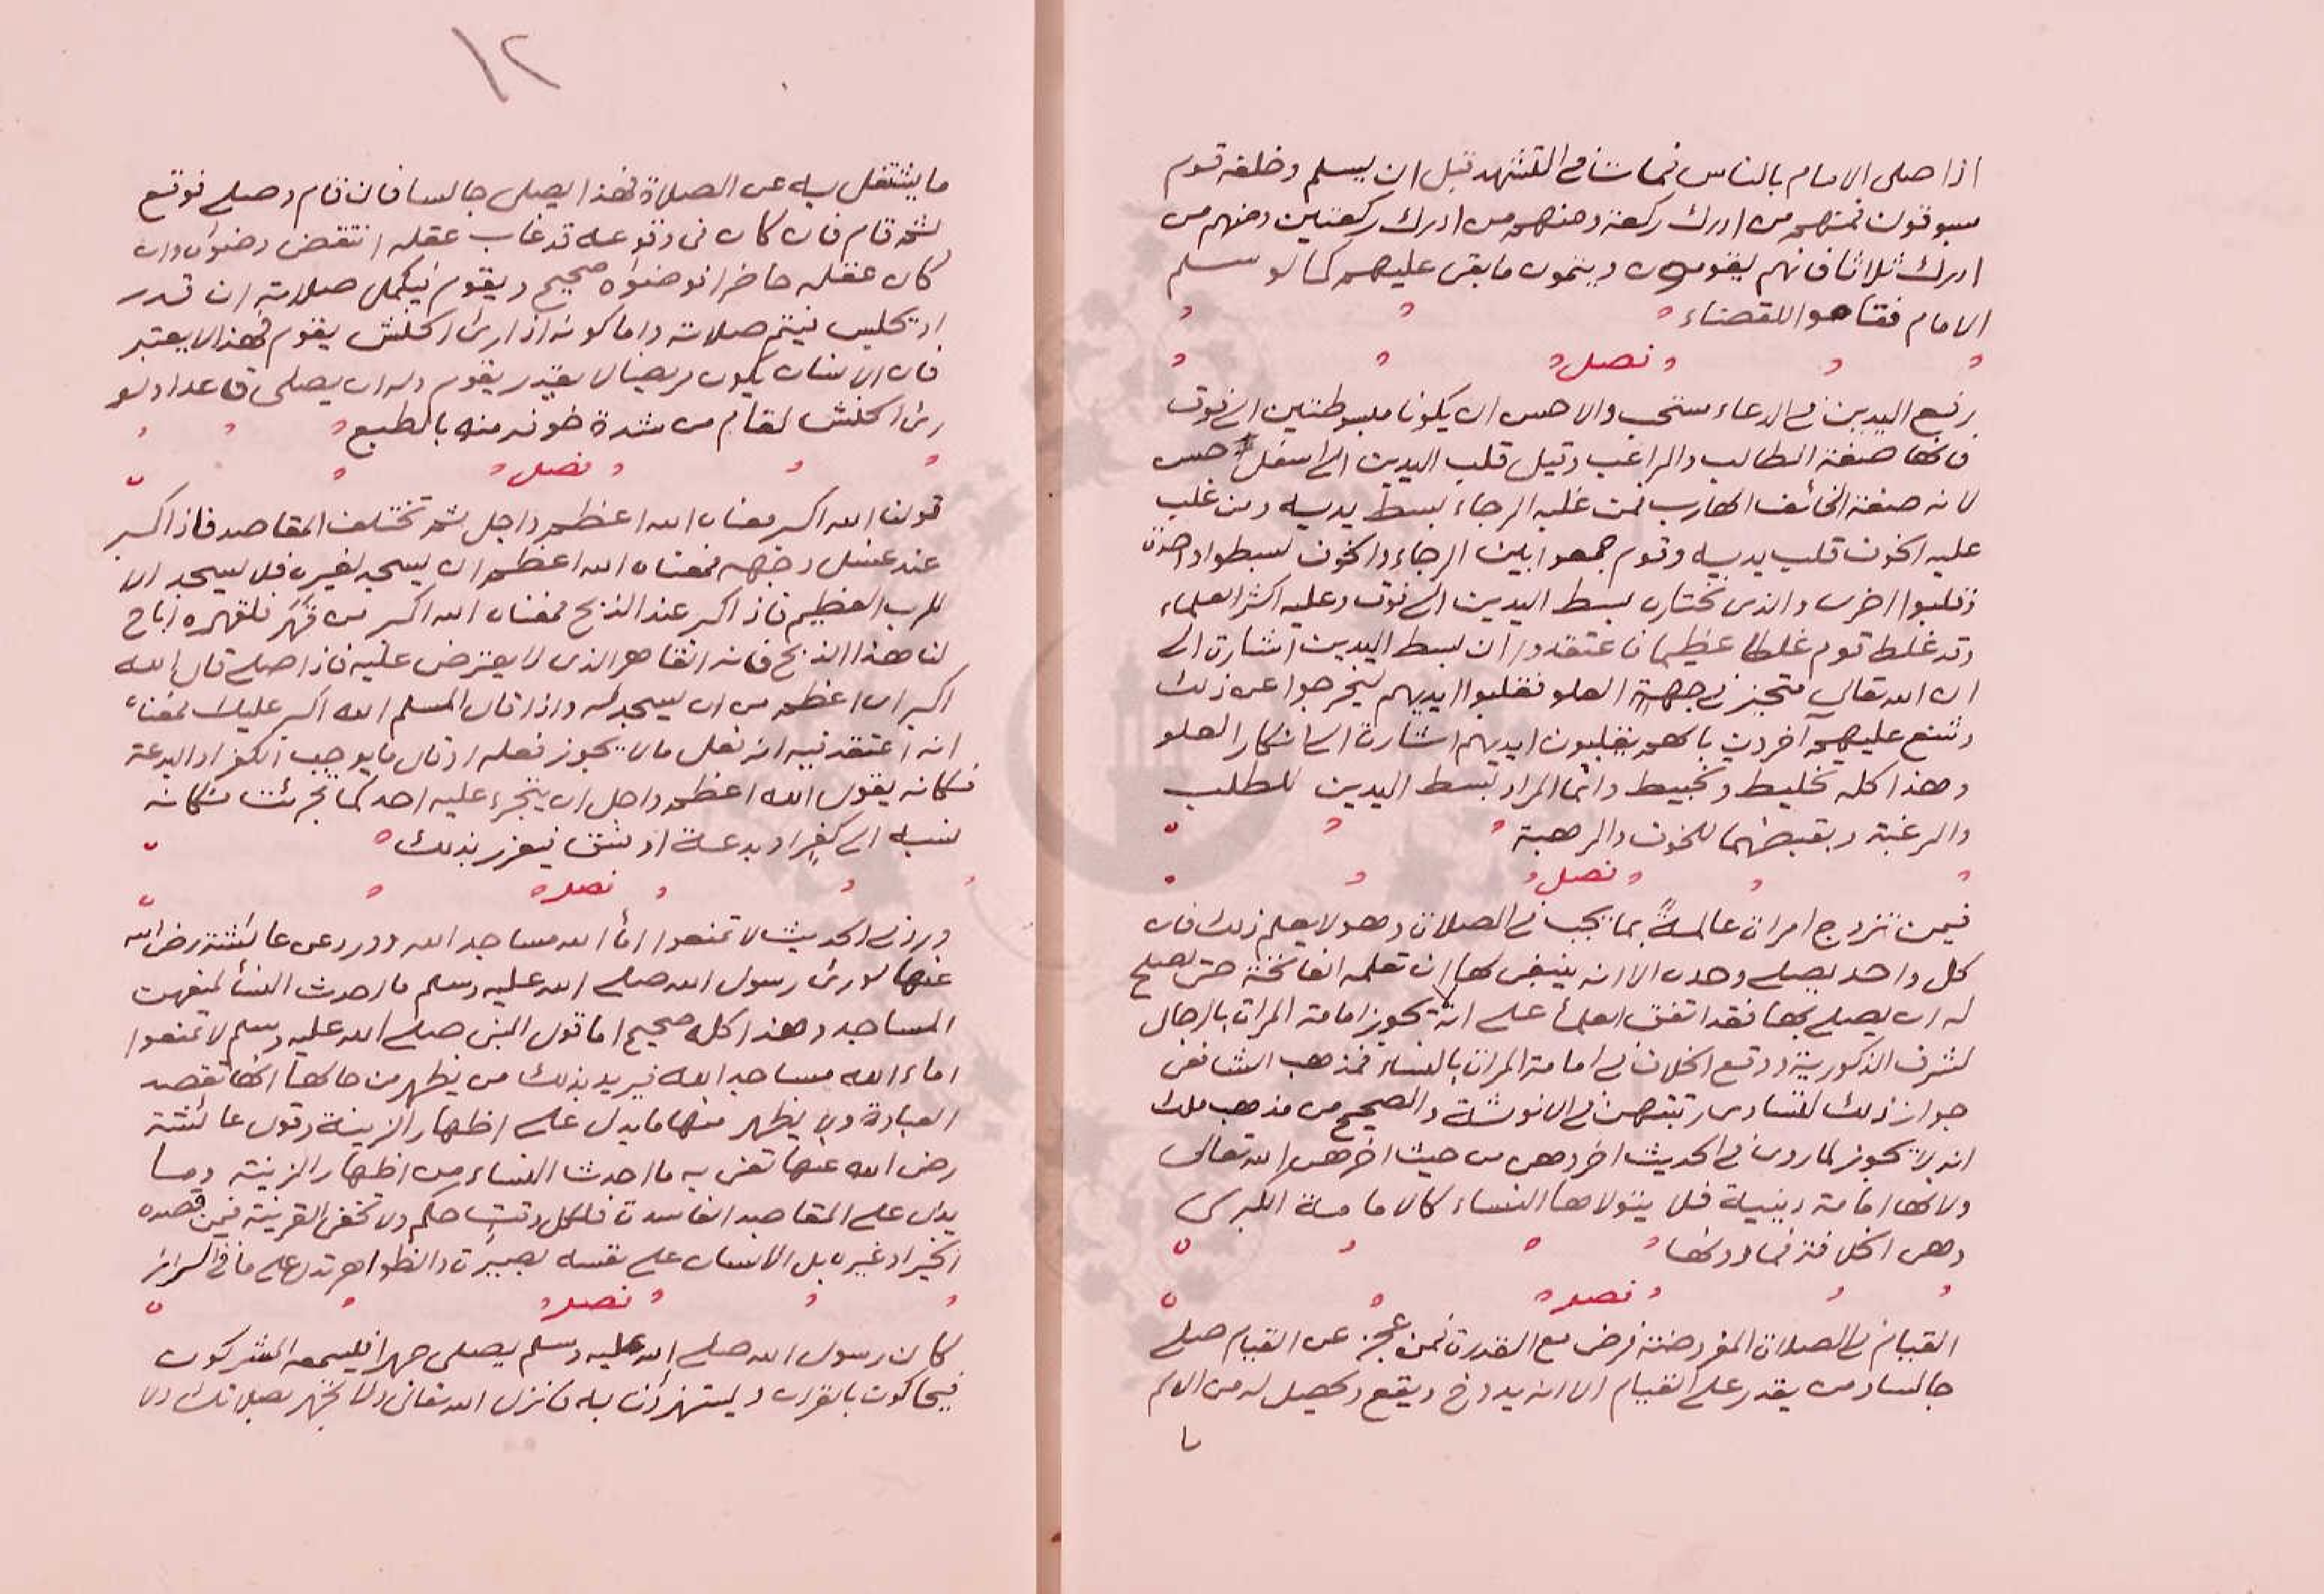 اذا صلى الامام بالناس فمات في التشهد قبل ان يسلم وخلفه قوم
مسبوقون فمنهم من ادرك ركعة ومنهم من ادرك ركعتين ومنهم من
ادرك ثلاثا فانهم يقومون ويتمون ما بقى عليهم كما لو سلم
الامام فقاموا للقضاء
فصل
رفع اليدين في الدعاء مستحب والاحسن ان يكونا مبسوطتين الى فوق
فانها صفة الطالب والراغب وقيل قلب اليدين الى اسفل احسن
لانه صفة الخائف الهارب فمن غلبه الرجاء بسط يديه ومن غلب
عليه الخوف قلب يديه وقوم جمعوا بين الرجاء والخوف فبسطوا واحدة
وقلبوا اخرى والذي نختاره بسط اليدين الى فوق وعليه اكثر العلماء
وقد غلط قوم غلطا عظيما فاعتقدوا ان بسط اليدين اشارة الى
ان الله تعالى متحيز في جهة العلو فقلبوا ايديهم ليخرجوا عن ذلك
وشنع عليهم آخرون بانهم يقلبون ايديهم اشارة الى انكار العلو
وهذا كله تخليط وتخبيط وانما المراد بسط اليدين للطلب
والرغبة وبقبضهما للخوف والرهبة
فصل
فيمن تزوج امراة عالمةً بما يجب في الصلاة وهو لا يعلم ذلك فان
كل واحد يصلي وحده الا انه ينبغي لها ان تعلمه الفاتحة حتى يصلح
له ان يصلي بها فقد اتفق العلماء على انه لا تجوز امامة المراة بالرجال
لشرف الذكورية ووقع الخلاف في امامة المراة بالنساء فمذهب الشافعي
جواز ذلك لتساوى رتبتهن في الانوثة والصحيح من مذهب مالك
انه لا يجوز لما روى في الحديث اخروهن من حيث اخرهن الله تعالى
ولانها امامة دينية فلا يتولاها النساء كالامامة الكبرى
وهى الخلافة فما دونها
فصل
القيام في الصلاة المفروضة فرض مع القدرة فمن عجز عن القيام صلى
جالسا ومن يقدر على القيام الا انه يدوخ ويقع ويحصل له من الالم
ما
١٢
ما يشتغل به عن الصلاة فهذا يصلى جالسا فان قام وصلى فوقع
ثم قام فان كان فى وقوعه قد غاب عقله انتقض وضوءه وان
كان عقله حاضرا فوضوءه صحيح ويقوم فيكمل صلاته ان قدر
او يجلس فيتم صلاته واما كونه اذا راى الحنش يقوم فهذا لا يعتبر
فان الانسان يكون مريضا لا يقدر يقوم وله ان يصلى قاعدا ولو
راى الحنش لقام من شدة خوفه منه بالطبع
فصل
قولنا الله اكبر معناه الله اعظم واجل ثم تختلف المقاصد فاذا كبر
عند غسل وجهه فمعناه الله اعظم ان يسجد لغيره فلا يسجد الا
للرب العظيم فاذا كبر عند الذبح فمعناه الله اكبر من قَهَر فلقهره اباح
لنا هذا الذبح فانه القاهر الذى لا يعترض عليه فاذا صلى قال الله
اكبر اى اعظم من ان يسجد له واذا قال المسلم الله اكبر عليك فمعناه
انه اعتقد فيه انه فعل ما لا يجوز فعله او قال ما يوجب الكفر او البدعة
فكانه يقول الله اعظم واجل ان يتجرء عليه احد كما تجرئت فكانه
نسبه الى كفرٍ او بدعة او فسق فيعزر بذلك
فصل
ورد في الحديث لا تمنعوا اماء الله مساجد الله وورد عن عائشة رضى الله
عنها لو راى رسول الله صلى الله عليه وسلم ما احدث النساء لمنعهن
المساجد وهذا كله صحيح اما قول النبى صلى الله عليه وسلم لا تمنعوا
اماء الله مساجد الله فيريد بذلك من يظهر من حالها انها تقصد
العبادة ولا يظهر منها ما يدل على اظهار الزينة وقول عائشة
رضى الله عنها تعنى به ما احدث النساء من اظهار الزينة وما
يدل على المقاصد الفاسدة فلكل وقتٍ حكم ولا تخفى القرينة فيمن قصده
الخير او غيره بل الانسان على نفسه بصيرة والظواهر تدل على ما فى السرائر
فصل
كان رسول الله صلى الله عليه وسلم يصلى جهرا فيسمعه المشركون
فيحاكون بالقران ويستهزئون به فانزل الله تعالى ولا تجهر بصلاتك ولا